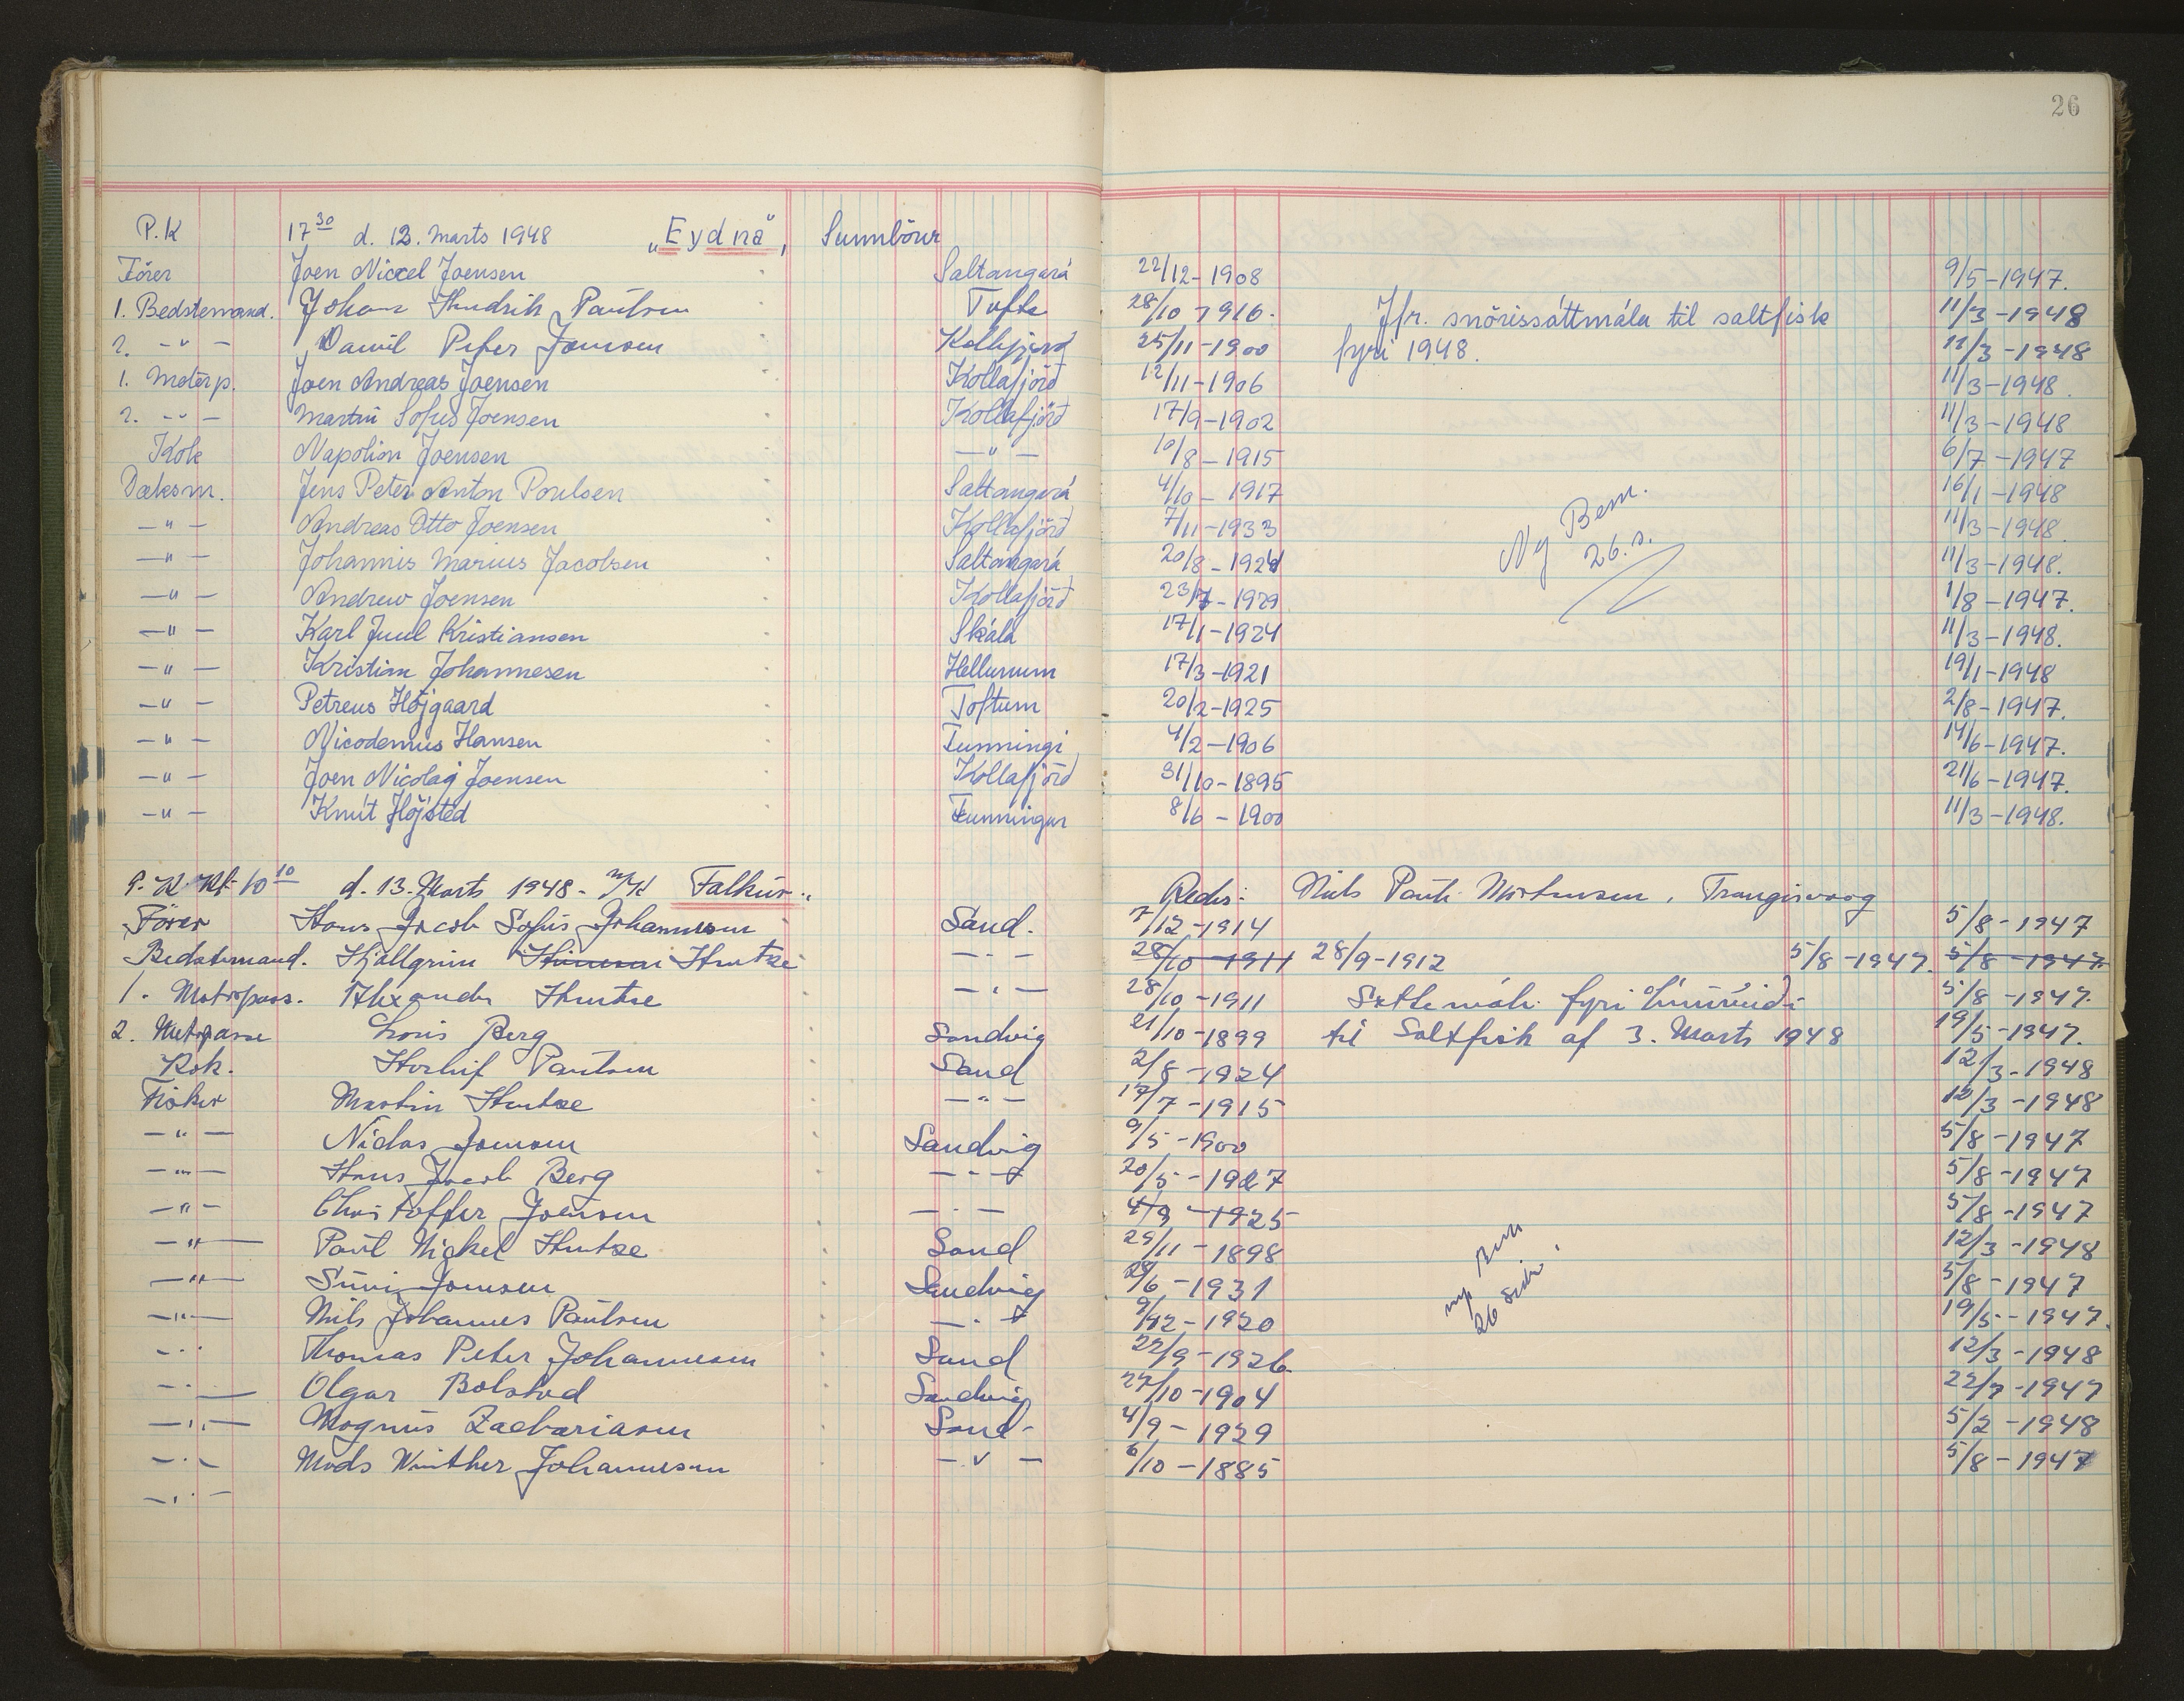 26
P.K 17 30 d. 12. Marts 1948 „Eydna", Sumbour
Förer Joen Nicxel Joensen Saltangará 22/12-1908 9/5-1947.
1. Bedstemand. Johan Hendrik Paulsen Tofte 28/10-1916. Jfr. snörissáttmála til saltfisk 11/3-1948
2. -"- Daniel Peter Joensen Kollefjord 25/11-1900 fyri 1948. 11/3-1948
1. Moterp. Joen Andreas Joensen Kollafjörd 12/11-1906 11/3-1948.
2. -"- Martin Sofus Joensen Kollafjörd 17/9-1902 11/3-1948
Kok Napolion Joensen -"- 10/8-1915 6/7-1947
Dæksm. Jens Peter Anton Poulsen Saltangará 4/10-1917 16/1-1948
-"- Andreas Otto Joensen Kollafjörd 7/11-1933 Ny Bem. 11/3-1948.
-"- Johannis Marius Jacobsen Saltangará 20/8-1924 26.s. 11/3-1948.
-"- Andrew Joensen Kollafjörd 23/7-1929 1/8-1947.
-"- Karl Juul Kristiansen Skála 17/1-1924 11/3-1948.
-"- Kristian Johannesen Hellunum 17/3-1921 19/1-1948
-"- Petreus Höjgaard Toftum 20/2-1925 2/8-1947.
-"- Nicodemus Hansen Funningi 4/2-1906 14/6-1947.
-"- Joen Nicolaj Joensen Kollafjörd 31/10-1895 21/6-1947.
-"- Knút Höjsted Funningur 8/6-1900 11/3-1948.
P.K Kl. 10 10 d. 13. Marts 1948 - M/K Falkur. Reder: Niels Pauli Mortensen, Trangisvaag
Förer Hans Jacob Sofus Johannesen Sand. 7/12-1914 5/8-1947
Bedstemand. Hjallgrim Hentze -"- 28/10-1911 28/9-1912 5/8-1947. 5/8-1947
1. Motorpass. Alexander Hentze -"- 28/10-1911 Sættemáli fyri línuveidi 5/8-1947.
2. Motorpasse Louis Berg Sandvig 21/10-1899 til Saltfisk af 3. Marts 1948 19/5-1947.
Kok. Thorleif Paulsen Sand 2/8-1924 12/3-1948
Fisker Martin Hentze -"- 17/7-1915 12/3-1948
-"- Niclas Joensen Sandvig 9/5-1900 5/8-1947
-"- Hans Jacob Berg -"- 20/5-1927 5/8-1947
-"- Christoffer Joensen -"- 4/9-1925 5/8-1947
-"- Paul Mickel Hentze Sand 29/11-1898 ny Bem 12/3-1948
-"- Súni Joensen Sandvig 28/6-1931 26 side. 5/8-1947
-"- Nils Johannes Paulsen -"- 9/12-1920 19/5-1947.
-"- Thomas Peter Johannesen Sand 22/9-1926 12/3-1948
-"- Olgar Bolstad Sandvig 27/10-1904 22/7-1947
-"- Magnus Zachariasen Sand- 4/9-1929 5/2-1948
-"- Mads Winther Johannesen -"- 6/10-1885 5/8-1947
-"-